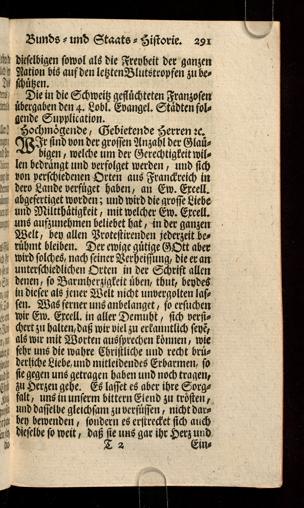 Bunds- und Staats-Historie. 291
dieselbigen sowol als die Freyheit der ganzen
Nation bis auf den letzten Blutstropfen zu be-
schützen.
Die in die Schweitz geflüchteten Franzosen
übergaben den 4. Lobl. Evangel. Städten fol-
gende Supplication.
Hochmögende, Gebietende Herren ꝛc.
Wir sind von der grossen Anzahl der Glau-
bigen, welche um der Gerechtigkeit wil-
len bedrängt und verfolget werden, und sich
von verschiedenen Orten aus Franckreich in
dero Lande verfüget haben, an Ew. Excell.
abgefertiget worden; und wird die grosse Liebe
und Mildthätigkeit, mit welcher Ew. Excell.
uns aufzunehmen beliebet hat, in der ganzen
Welt, bey allen Protestirenden jederzeit be-
rühmt bleiben. Der ewige gütige GOtt aber
wird solches, nach seiner Verheissung, die er an
unterschiedlichen Orten in der Schrift allen
denen, so Barmherzigkeit üben, thut, beydes
in dieser als jener Welt nicht unvergolten las-
sen. Was ferner uns anbelanget, so ersuchen
wir Ew. Excell. in aller Demuht, sich versi-
chert zu halten, daß wir viel zu erkanntlich seyē,
als wir mit Worten aussprechen können, wie
sehr uns die wahre Christliche und recht brü-
derliche Liebe, und mitleidendes Erbarmen, so
sie gegen uns getragen haben und noch tragen,
zu Herzen gehe. Es lasset es aber ihre Sorg-
falt, uns in unserm bittern Elend zu trösten,
und dasselbe gleichsam zu versüssen, nicht dar-
bey bewenden, sondern es erstrecket sich auch
dieselbe so weit, daß sie uns gar ihr Herz und
T 2 Ein-